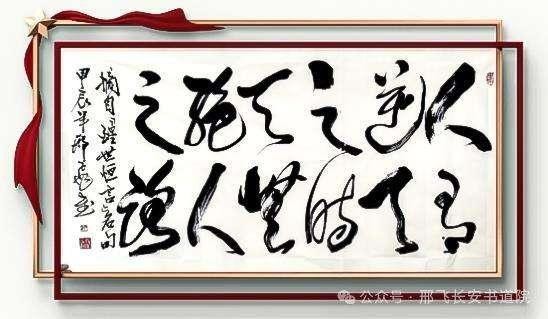 人有
逆天
之时
天无
绝人
之路
摘自醒世恒言名句
甲辰年邢飞书
公众号 · 邢飞长安书道院